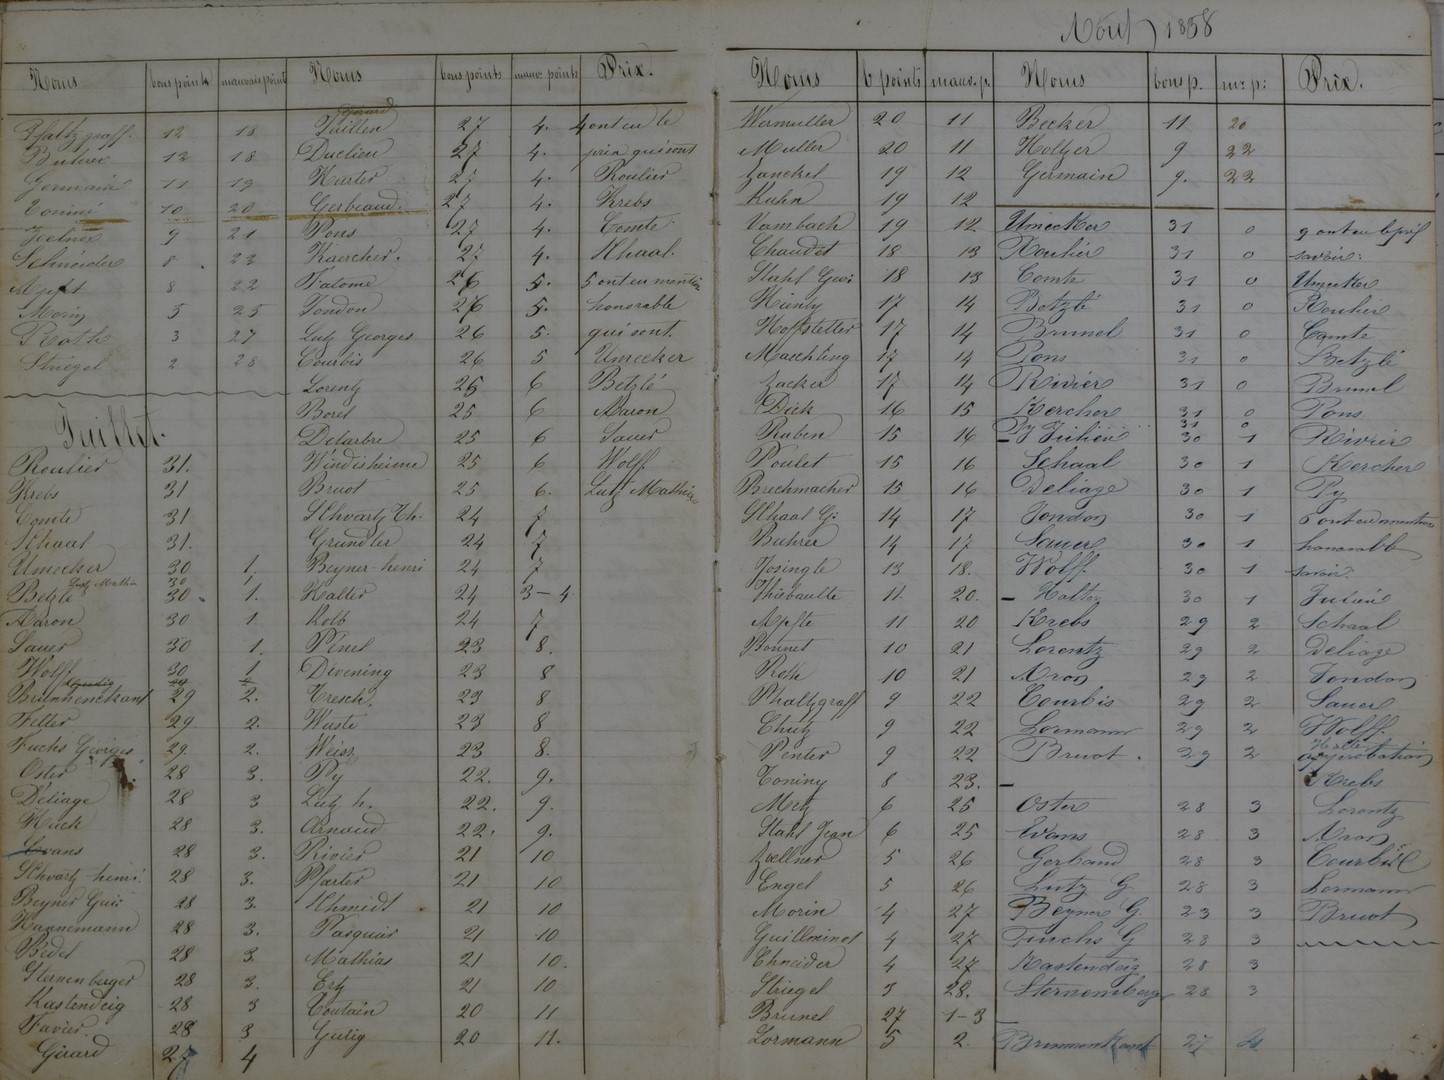 Août 1858
Noms bons points mauvais point Noms bons points mauv. points Prix.
Pfaltzgraff. 12 18
Buhrer 12 18
Germain 11 19
Tonini 10 20
Zoelner 9 21
Schneider 8 22
Apft 8 22
Morin 5 25
Roth 3 27
Striegel 2 28
Juillet.
Roulier 31.
Krebs 31
Comte 31
Schaal 31.
Umecker 30 1.
Lutz Mathia 30 1
Betzlé 30 1.
Aaron 30 1
Sauer 30 1.
Wolff 30 1
Brunnenkant 29 2.
Felter 29 2.
Fuchs Georges 29. 2.
Oster 28 3.
Déliage 28 3
Huck 28 3.
Evans 28 3.
Schvartz henri 28 3.
Beyner Gus: 28 3.
Hannemann 28 3.
Bédel 28 3
Sternenberger 28 3.
Kastendeig 28 3
Favier 28 3
Girard 27 4
Girard
Paillen 27 4. 4 ont eu le
Duclieu 27 4. prix qui sont
Kuster 27 4. Roulier
Gerbeaud. 27 4. Krebs
Pons 27 4. Comte
Kaercher. 27 4. Schaal.
Falome 26 5. 5 ont eu mention
Tondon 26 5. honorable
Lutz Georges 26 5. qui sont.
Courbis 26 5 Umecker
Lorentz 25 6 Betzlé
Borel 25 6 Aaron
Delarbre 25 6 Sauer
Windisheime 25 6 Wolff.
Bruot 25 6. Lutz Mathia
Schvartz Th. 24 7
Grundler 24 7
Beyner henri 24 7
Halter 24 3-4
Kolb 24 7
Pinel 23 8.
Divening 23 8
Cresch. 23 8
Wuste 23 8
Weisz 23 8.
Py 22. 9.
Lutz h. 22. 9.
Arnaud 22. 9.
Rivier 21 10
Pfarter 21 10
Schmidt 21 10
Pasquier 21 10
Mathias 21 10.
Erty 21 10
Coutain 20 11
Gulig 20 11.
Noms b points mauv. p. Noms bons p. m: p: Prix.
Wermuller 20 11
Muller 20 11
Zanckel 19 12
Kuhn 19 12
Vambach 19 12
Chaudet 18 13
Stahl Gus: 18 13
Kienty 17 14
Hoffstetter 17 14
Maechling 17 14
Zacker 17 14
Dick 16 15
Ruben 15 16
Poulet 15 16
Brechmacher 15 16
Schaal G: 14 17
Buhrer 14 17
Josingle 13 18.
Thiebaulte 11 20.
Apfte 11 20
Bonnet 10 21
Roth 10 21
Phaltzgraff 9 22
Chutz 9 22
Penter 9 22
Toniny 8 23.
Metz 6 25
Stahl Jean 6 25
Zoellner 5 26
Engel 5 26
Morin 4 27
Guillminot 4 27
Chneider 4 27
Striegel 3 28.
Brunel 27 1-3
Lormann 5 2.
Becker 11 20
Holtzer 9 22
Germain 9. 22
Umecker 31 0 9 ont eu le prix
Roulier 31 0 savoir:
Comte 31 0 Umecker
Betzlé 31 0 Roulier
Brunel 31 0 Comte
Pons 31 0 Betzlé
Rivier 31 0 Brunel
Kercher 31 0 Pons
Py 31 0
Julien 30 1 Rivier
Schaal 30 1 Kercher
Deliage 30 1 Py
Tondon 30 1 5 ont eu mention
Sauer 30 1 honorable
Wolff. 30 1 savoir.
Halter 30 1 Julien
Krebs 29 2 Schaal
Lorentz 29 2 Deliage
Aron 29 2 Tondon
Courbis 29 2 Sauer
Lormann 29 2 Wolff.
Bruot. 29 2 approbation
Krebs
Oster 28 3 Lorentz
Evans 28 3 Aron
Gerbaud 28 3 Courbis
Lutz G 28 3 Lormann
Beyner G. 28 3 Bruot
Fuchs G 28 3
Kastendeig 28 3
Sternemberg 28 3
Brunnenkant 27